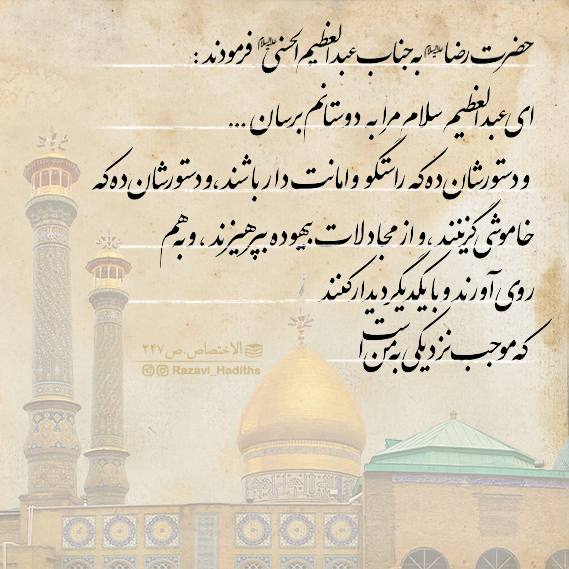 حضرت رضا علیه‌السلام به جناب عبدالعظیم الحسنی علیه‌السلام فرمودند :
ای عبدالعظیم سلام مرا به دوستانم برسان ...
و دستورشان ده که راستگو و امانت دار باشند ، و دستورشان ده که
خاموشی گزینند ، و از مجادلات بیهوده بپرهیزند ، و به هم
روی آورند و با یکدیگر دیدار کنند
که موجب نزدیکی به من است
الاختصاص.ص ۲۴۷
Razavi_Hadiths